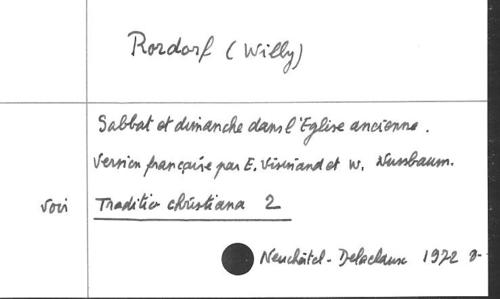 Rordorf (Willy)
Sabbat et dimanche dans l'Eglise ancienne.
Version française par E. Visinand et W. Nussbaum.
voir Traditio christiana 2
Neuchâtel - Delachaux 1972 8-